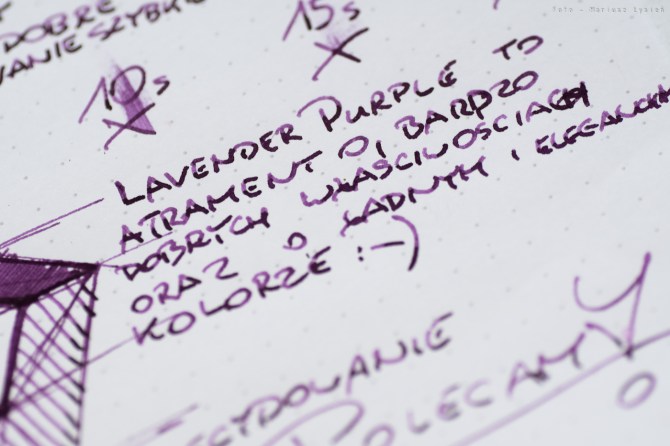 foto - Mariusz Lysień
DOBRE
15s
WANIE SZYBKIE
10s
LAVENDER PURPLE TO
ATRAMENT O BARDZO
DOBRYCH WŁAŚCIWOŚCIACH
ORAZ O ŁADNYM I ELEGANCKIM
KOLORZE :-)
ECYDOWANIE
POLECAMY